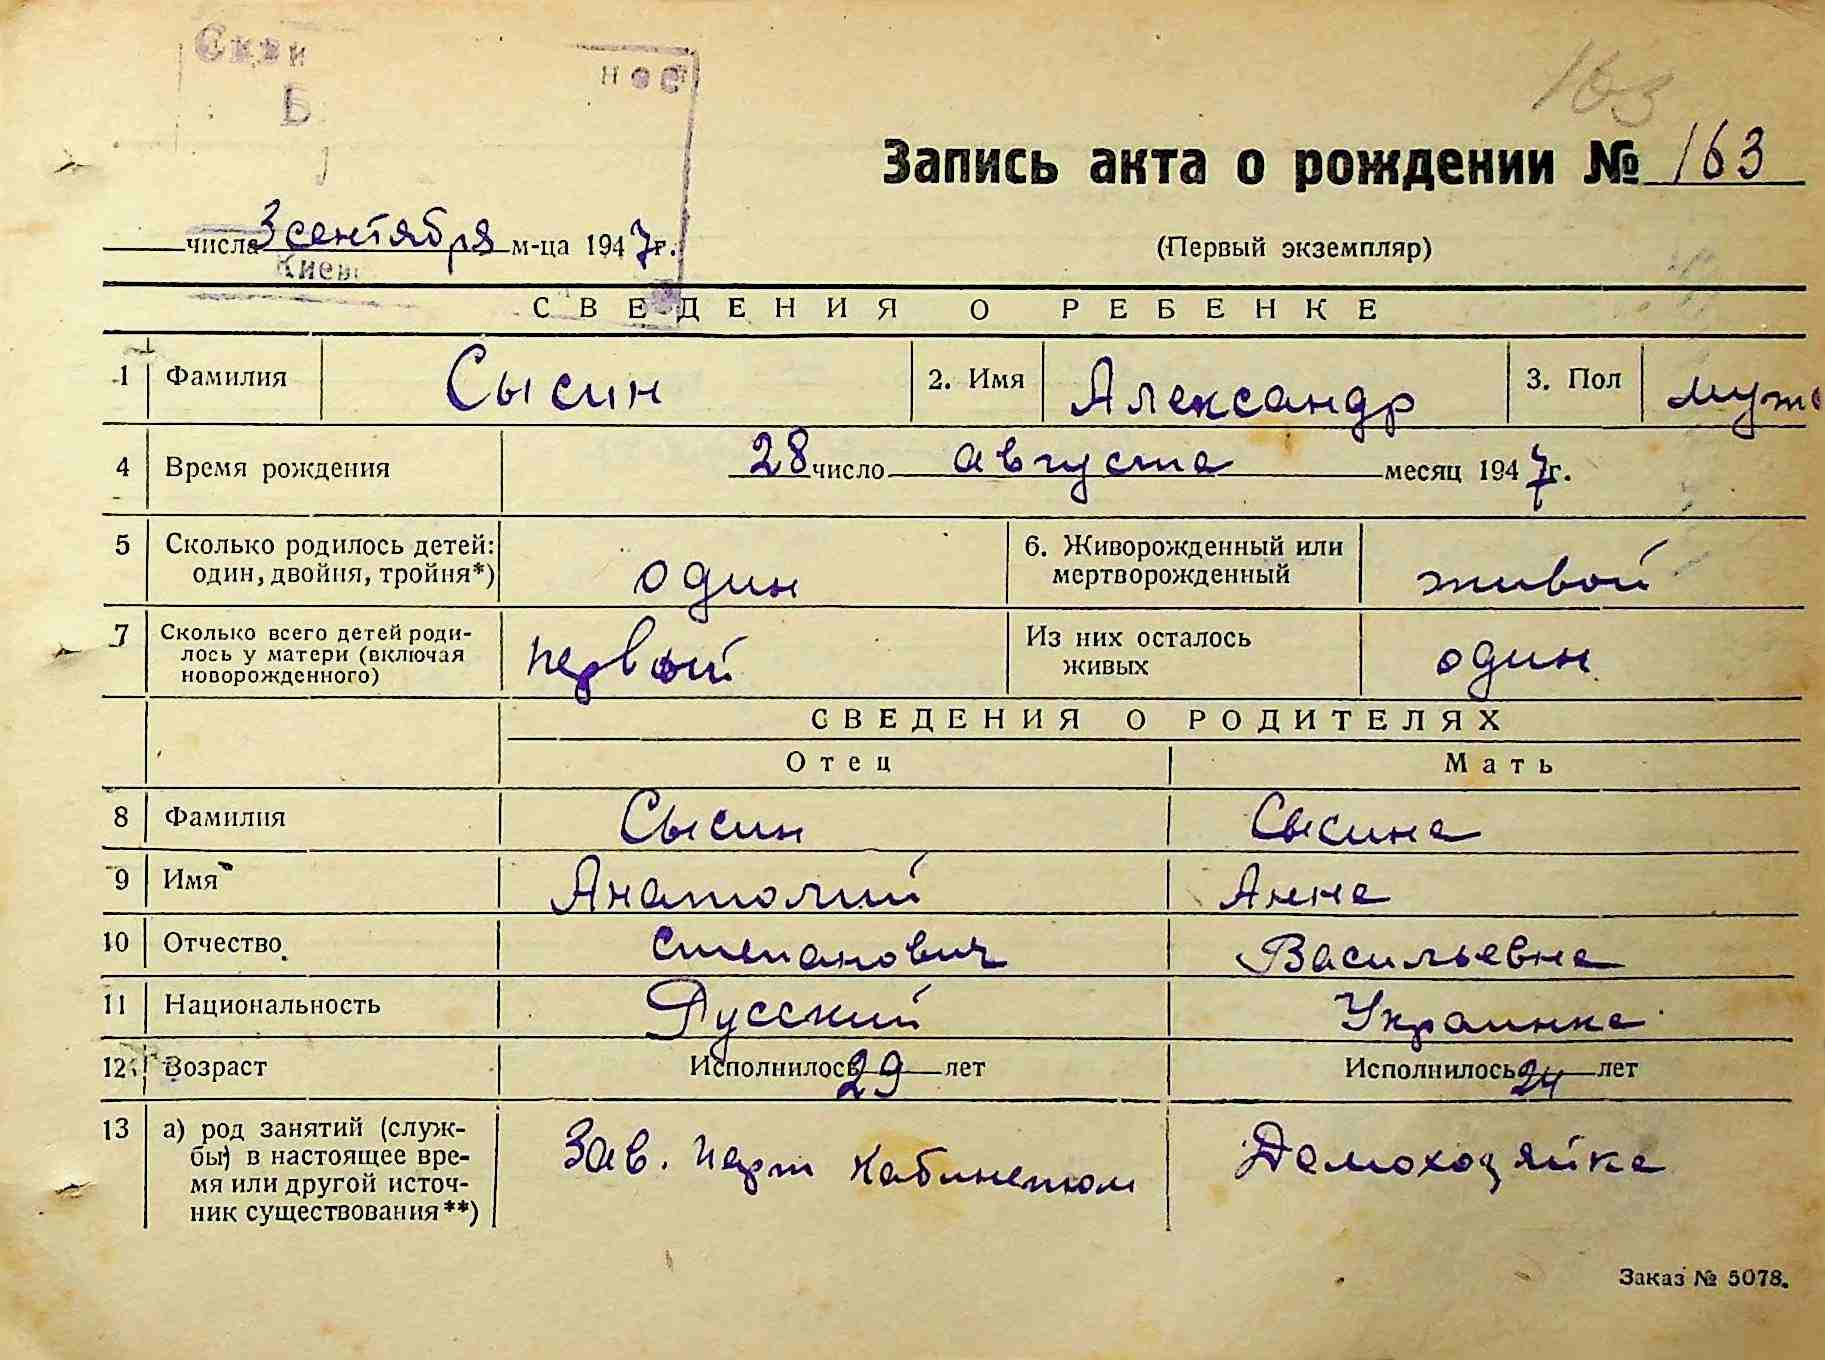 163
Запись акта о рождении № 163
числа 3 сентября м-ца 1947 г.
(Первый экземпляр)
Киев
СВЕДЕНИЯ О РЕБЕНКЕ
1 Фамилия Сысин 2. Имя Александр 3. Пол муж
4 Время рождения 28 число августа месяц 1947 г.
5 Сколько родилось детей: один 6. Живорожденный или живой
один, двойня, тройня*) мертворожденный
7 Сколько всего детей роди- первый Из них осталось один
лось у матери (включая живых
новорожденного)
СВЕДЕНИЯ О РОДИТЕЛЯХ
Отец Мать
8 Фамилия Сысин Сысина
9 Имя Анатолий Анна
10 Отчество Степанович Васильевна
11 Национальность Русский Украинка
12 Возраст Исполнилось 29 лет Исполнилось 24 лет
13 а) род занятий (служ- Зав. парт кабинетом Домохозяйка
бы) в настоящее вре-
мя или другой источ-
ник существования**)
Заказ № 5078.